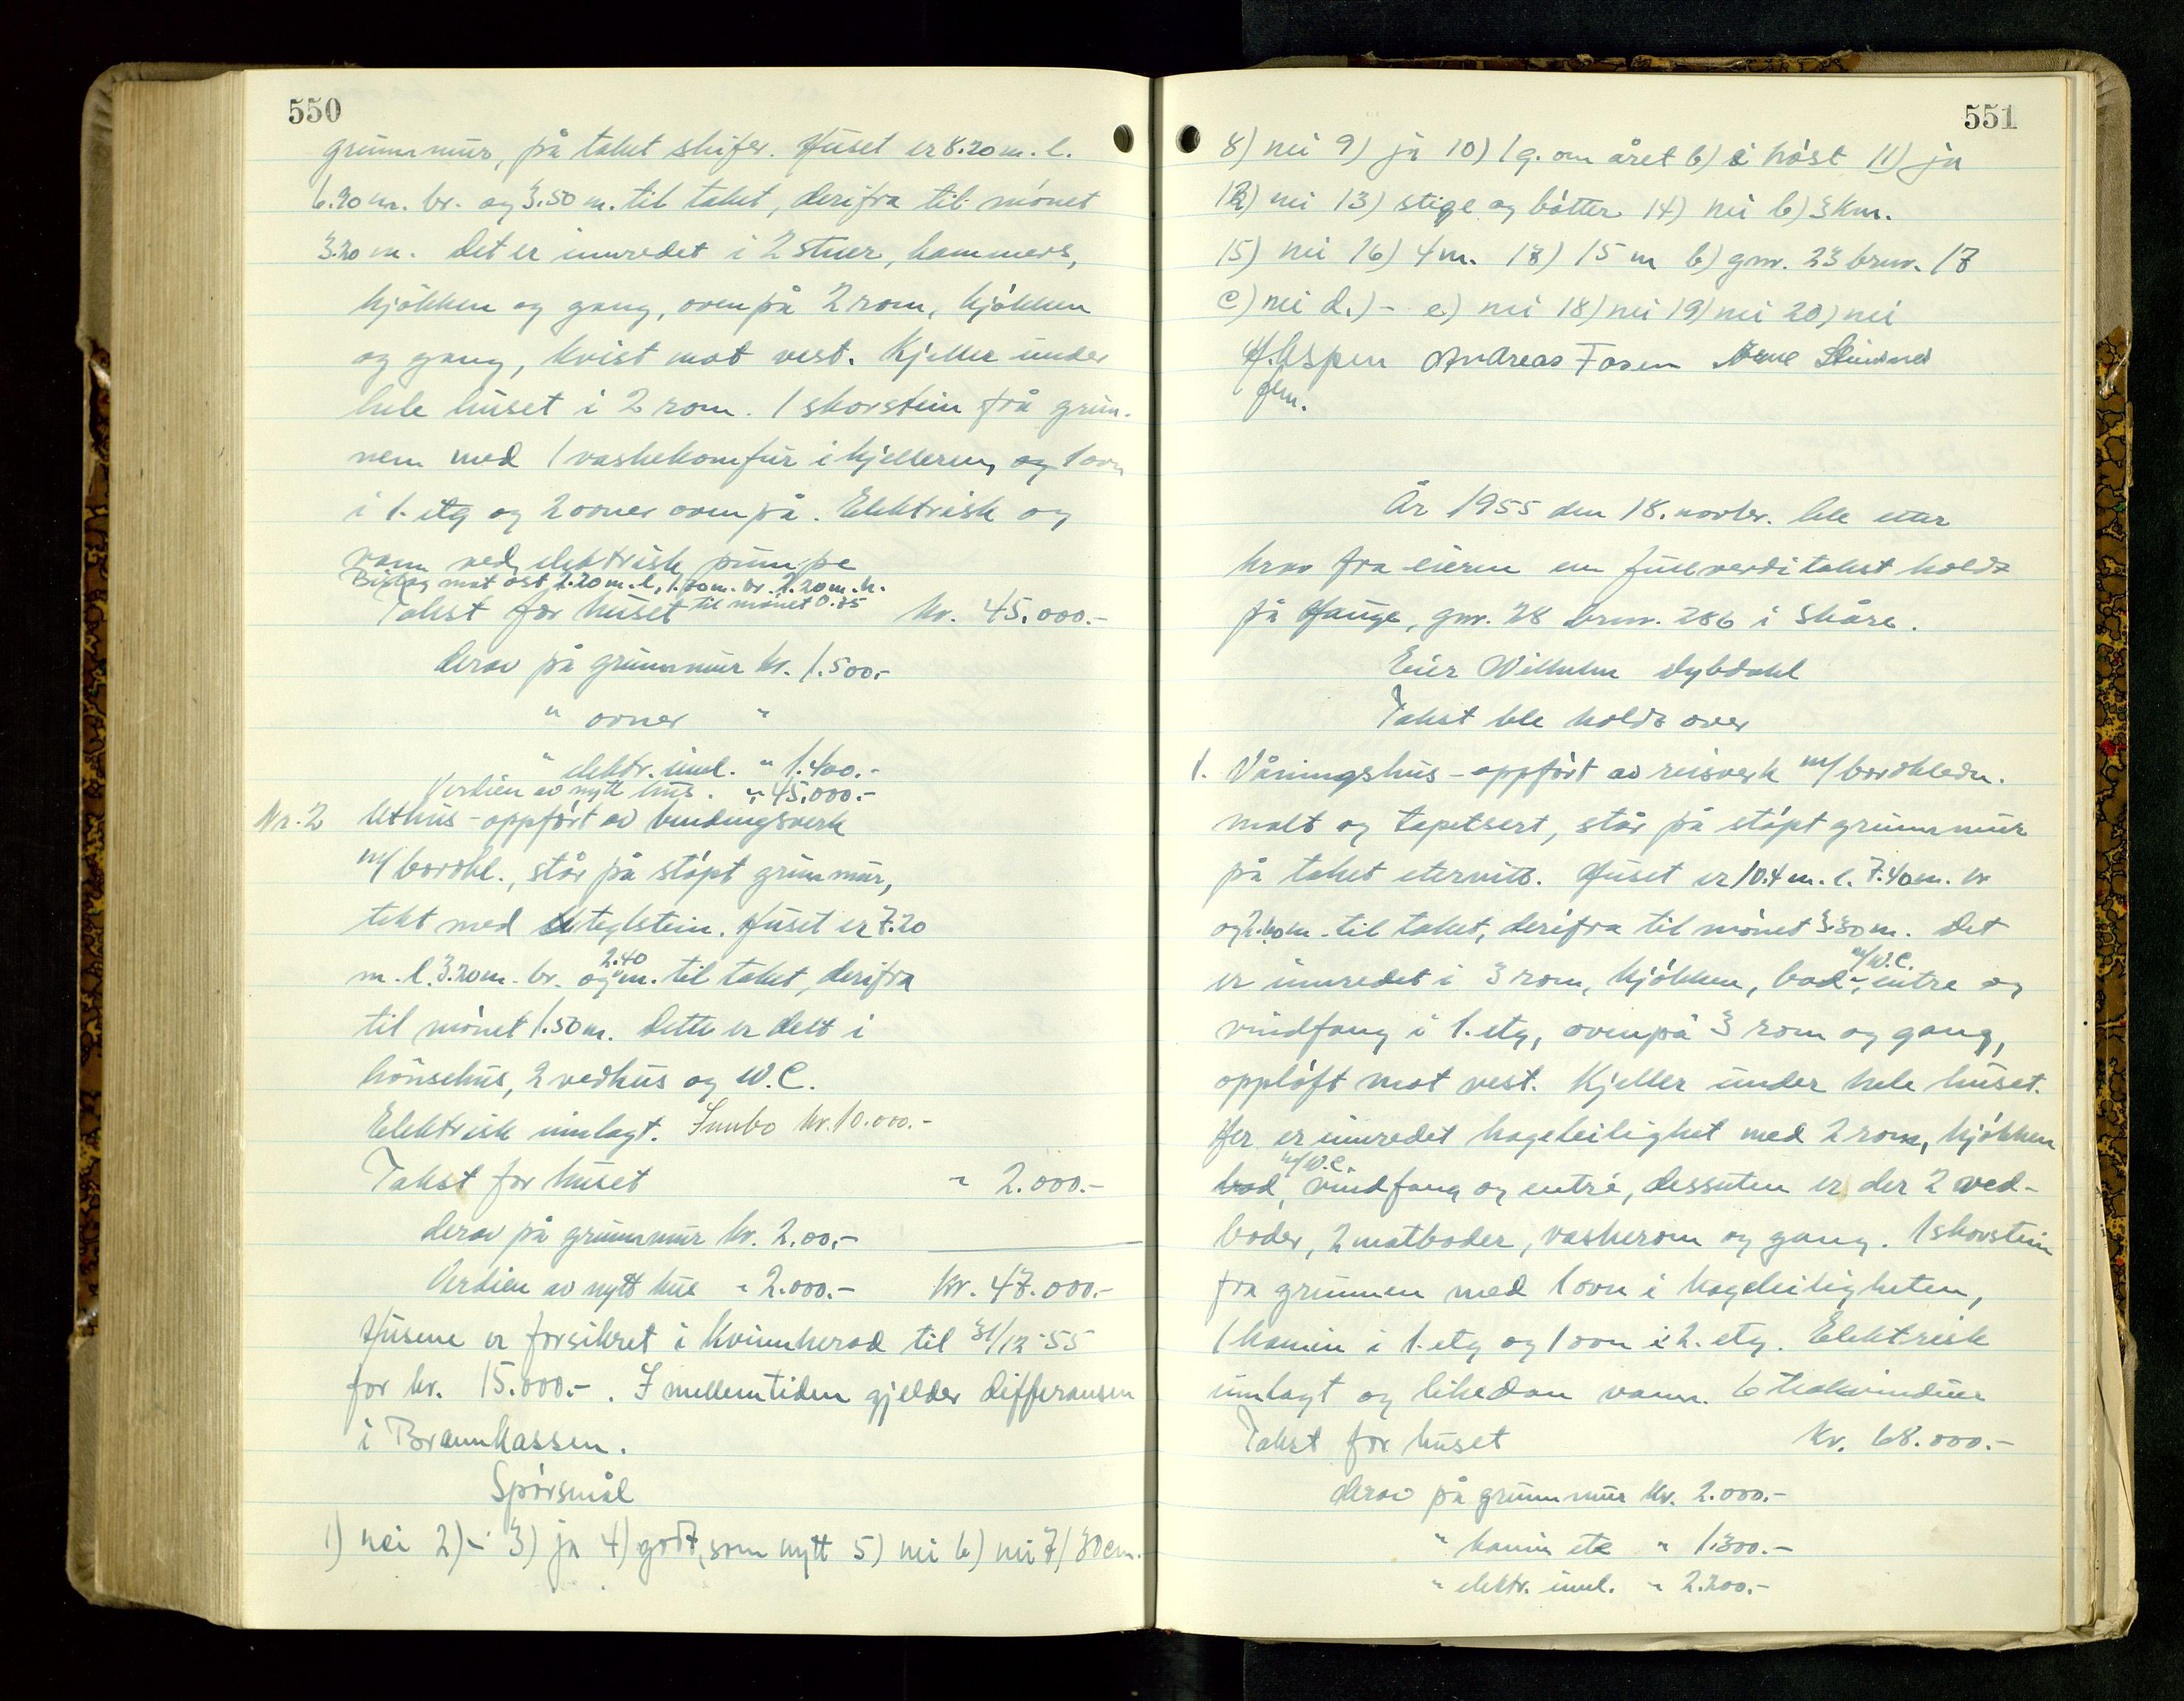 550
grunnmur, på taket skifer. Huset er 8.20 m. l.
6.20 m. br. og 3.50 m. til taket, derifra til mønet
3.20 m. Det er innredet i 2 stuer, kammers,
kjøkken og gang, ovenpå 2 rom, kjøkken
og gang, kvist mot vest. Kjeller under
hele huset i 2 rom. 1 skorstein frå grun-
nem med 1 vaskekomfur i kjelleren, og 1 ovn
i 1. etg og 2 ovner ovenpå. Elektrisk og
vann ved elektrisk pumpe
Bislag mot øst 2.20 m. l, 1.20 m. br. 2.20 m. h.
til mønet 0.75
Takst for huset kr. 45.000.-
derav på grunnmur kr. 1.500.-
" ovner "
" elektr. innl. " 1.400.-
Verdien av nytt hus. " 45.000.-
Nr. 2 Uthus - oppført av bindingsverk
m/ bordkl., står på støpt grunmur,
tekt med uteglstein. Huset er 7.20
m. l. 3.20 m. br. og 2.40 m. til taket, derifra
til mønet 1.50 m. Dette er delt i
hønsehus, 2 vedhus og W.C.
Elektrisk innlagt. Innbo kr. 10.000.-
Takst for huset " 2.000.-
derav på grunnmur kr. 2.00.-
Verdien av nytt hus " 2.000.- kr. 47.000.-
Husene er forsikret i Kvinnherad til 31/12-55
for kr. 15.000.-. I mellemtiden gjelder differansen
i Brannkassen.
Spørsmål
1) nei 2) - 3) ja 4) godt, som nytt 5) nei 6) nei 7) 30 cm.
551
8) nei 9) ja 10) 1 g. om året b) i høst 11) ja
12) nei 13) stige og bøtter 14) nei b) 3 km.
15) nei 16) 4 m. 17) 15 m b) gnr. 23 brnr. 17
c) nei d.) - e) nei 18) nei 19) nei 20) nei
H. Aspen Andreas Fosen Arne
fm.
År 1955 den 18. novbr. ble etter
krav fra eieren en fullverditakst holdt
på Hauge, gnr. 28 brnr. 286 i Skåre.
Eier Wilhelm Dybdahl
Takst ble holdt over
1. Våningshus - oppført av reisverk m/ bordkledn.
malt og tapetsert, står på støpt grunnmur
på taket eternitt. Huset er 10.4 m. l. 7.40 m. br
og 2.60 m. til taket, derifra til mønet 3.30 m. Det
er innredet i 3 rom, kjøkken, bad m/W.C., entre og
vindfang i 1. etg, ovenpå 3 rom og gang,
oppløft mot vest. Kjeller under hele huset.
Her er innredet hageleilighet med 2 rom, kjøkken
bad m/W.C., vindfang og entré, dessuten er der 2 ved-
boder, 2 matboder, vaskerom og gang. 1 skorstein
fra grunnen med 1 ovn i hageleiligheten,
1 kamin i 1. etg og 1 ovn i 2. etg. Elektrisk
innlagt og likedan vann. 6 trekvinduer
Takst for huset Kr. 68.000.-
derav på grunnmur kr. 2.000.-
" kamin etc " 1.300.-
" elektr. innl. " 2.200.-